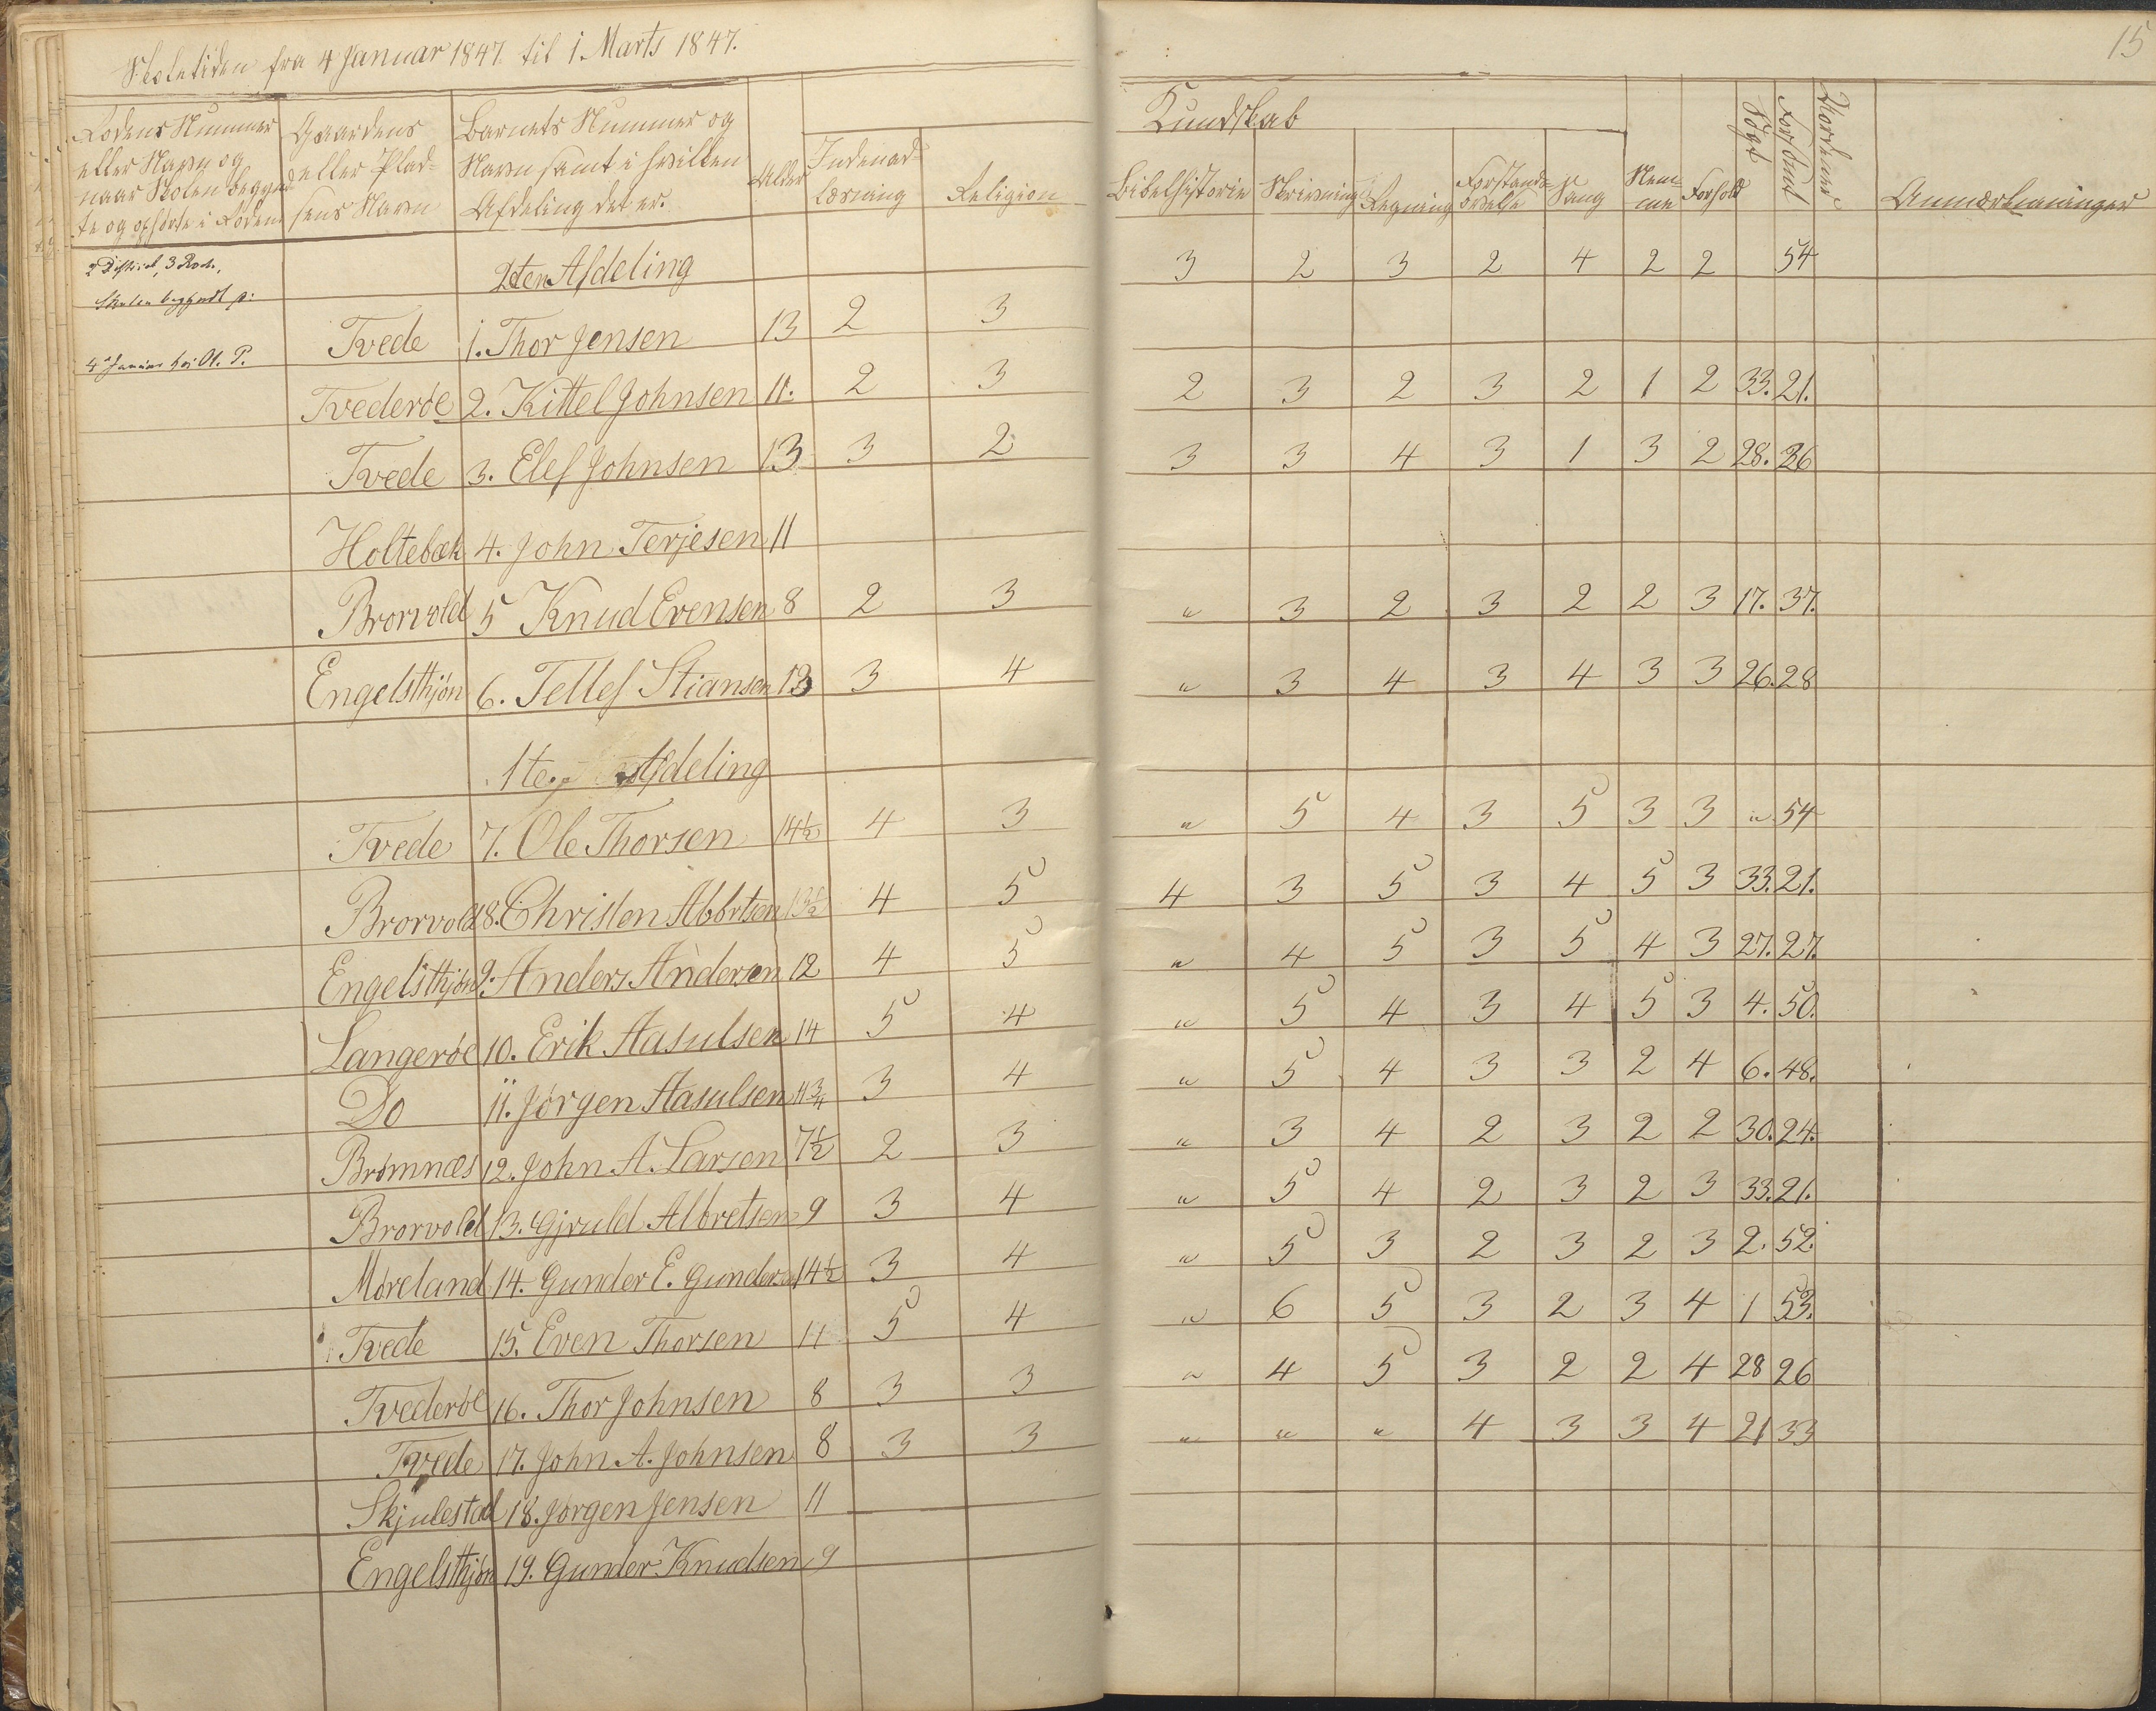 Skoletiden fra 4 Januar 1847 til 1. Marts 1847.
15
Rodens Nummer eller Navn og naar Skolen begyndte og ophørte i Roden
Gaardens eller Pladsens Navn
Barnets Nummer og Navn samt i hvilken Afdeling det er.
Alder
Kundskab
Indenadlæsning
Religion
Bibelhistorie
Skrivning
Regning
Forstandsøvelse
Sang
Nemme
Forhold
Søgt
Forsømt
Anmærkninger
2 District, 3 Rode,
Skolen begyndt d:
4de Januar hos O. T.
2den Afdeling
3 2 3 2 4 2 2 54
Tvede 1. Thor Jensen 13 2 3
Tvederöe 2. Kittel Johnsen 11. 2 3 2 3 2 3 2 1 2 33. 21.
Tvede 3. Elef Johnsen 13 3 2 3 3 4 3 1 3 2 28. 26
Holtebæk 4. John Terjesen 11
Brorvold 5 Knud Evensen 8 2 3 " 3 2 3 2 2 3 17. 37.
Engelsthjön 6. Tellef Stiansen 13 3 4 " 3 4 3 4 3 3 26. 28
1te Afdeling
Tvede 7. Ole Thorsen 14½ 4 3 " 5 4 3 5 3 3 " 54
Brorvold 8. Christen Abbrtsen 13½ 4 5 4 3 5 3 4 5 3 33. 21.
Engelsthjön 9. Anders Andersen 12 4 5 " 4 5 3 5 4 3 27. 27.
Langeröe 10. Erik Aasulsen 14 5 4 " 5 4 3 4 5 3 4. 50.
Do 11. Jörgen Aasulsen 11¾ 3 4 " 5 4 3 3 2 4 6. 48.
Brömnæs 12. John A. Larsen 7½ 2 3 " 3 4 2 3 2 2 30. 24.
Brorvold 13. Gjruld Albretsen 9 3 4 " 5 4 2 3 2 3 33. 21.
Möreland 14. Gunder E. Gunders 14½ 3 4 " 5 3 2 3 2 3 2. 52.
Tvede 15. Even Thorsen 11 5 4 " 6 5 3 2 3 4 1 53.
Tvederöe 16. Thor Johnsen 8 3 3 " 4 5 3 2 2 4 28 26
Tvede 17. John A. Johnsen 8 3 3 " " " 4 3 3 4 21 33
Skjulestad 18. Jörgen Jensen 11
Engelsthjön 19. Gunder Knudsen 9